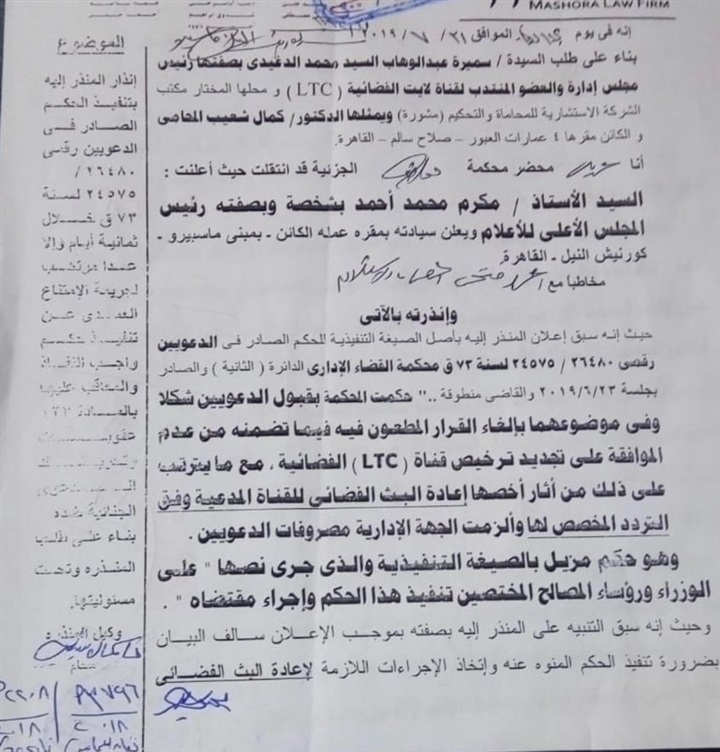 MASHORA LAW FIRM
إنه فى يوم الموافق ٢١ / ٧ / ٢٠١٩
بناء على طلب السيدة / سميرة عبدالوهاب السيد محمد الدغيدى بصفتها رئيس
مجلس إدارة والعضو المنتدب لقناة لايت الفضائية ( LTC ) و محلها المختار مكتب
الشركة الاستشارية للمحاماة والتحكيم (مشورة) ويمثلها الدكتور/ كمال شعيب المحامى
و الكائن مقرها ٤ عمارات العبور - صلاح سالم - القاهرة.
أنا محضر محكمة الجزئية قد انتقلت حيث أعلنت :
السيد الأستاذ / مكرم محمد أحمد بشخصة وبصفته رئيس
المجلس الأعلى للأعلام ويعلن سيادته بمقره عمله الكائن - بمبنى ماسبيرو -
كورنيش النيل - القاهرة.
مخاطبا مع
وإنذرته بالآتى
حيث إنه سبق إعلان المنذر إليه بأصل الصيغة التنفيذية للحكم الصادر فى الدعويين
رقمى ٢٦٤٨٠ / ٢٤٥٧٥ لسنة ٧٣ ق محكمة القضاء الإدارى الدائرة ( الثانية ) والصادر
بجلسة ٢٠١٩/٦/٢٣ والقاضى منطوقة .." حكمت المحكمة بقبول الدعويين شكلا
وفى موضوعهما بإلغاء القرار المطعون فيه فيما تضمنه من عدم
الموافقة على تجديد ترخيص قناة ( LTC ) الفضائية ، مع ما يترتب
على ذلك من أثار أخصها إعادة البث الفضائى للقناة المدعية وفق
التردد المخصص لها وألزمت الجهة الإدارية مصروفات الدعويين .
وهو حكم مزيل بالصيغة التنفيذية والذى جرى نصها " على
الوزراء ورؤساء المصالح المختصين تنفيذ هذا الحكم وإجراء مقتضاه " .
وحيث إنه سبق التنبيه على المنذر إليه بصفته بموجب الإعلان سالف البيان
بضرورة تنفيذ الحكم المنوه عنه وإتخاذ الإجراءات اللازمة لإعادة البث الفضائى
الموضوع
إنذار المنذر إليه
بتنفيذ الحكم
الصادر فى
الدعويين رقمى
٢٦٤٨٠ /
٢٤٥٧٥ لسنة
٧٣ ق خلال
ثمانية أيام وإلا
عدا مرتكب
لجريمة الإمتناع
العمدى عن
تنفيذ حكم
واجب النفاذ
والمعاقب عليها
بالمادة ١٢٣
عقوبات
الجنائية ضده
بناء على طلب
المنذره وتحت
مسئوليتها.
وكيل المنذره